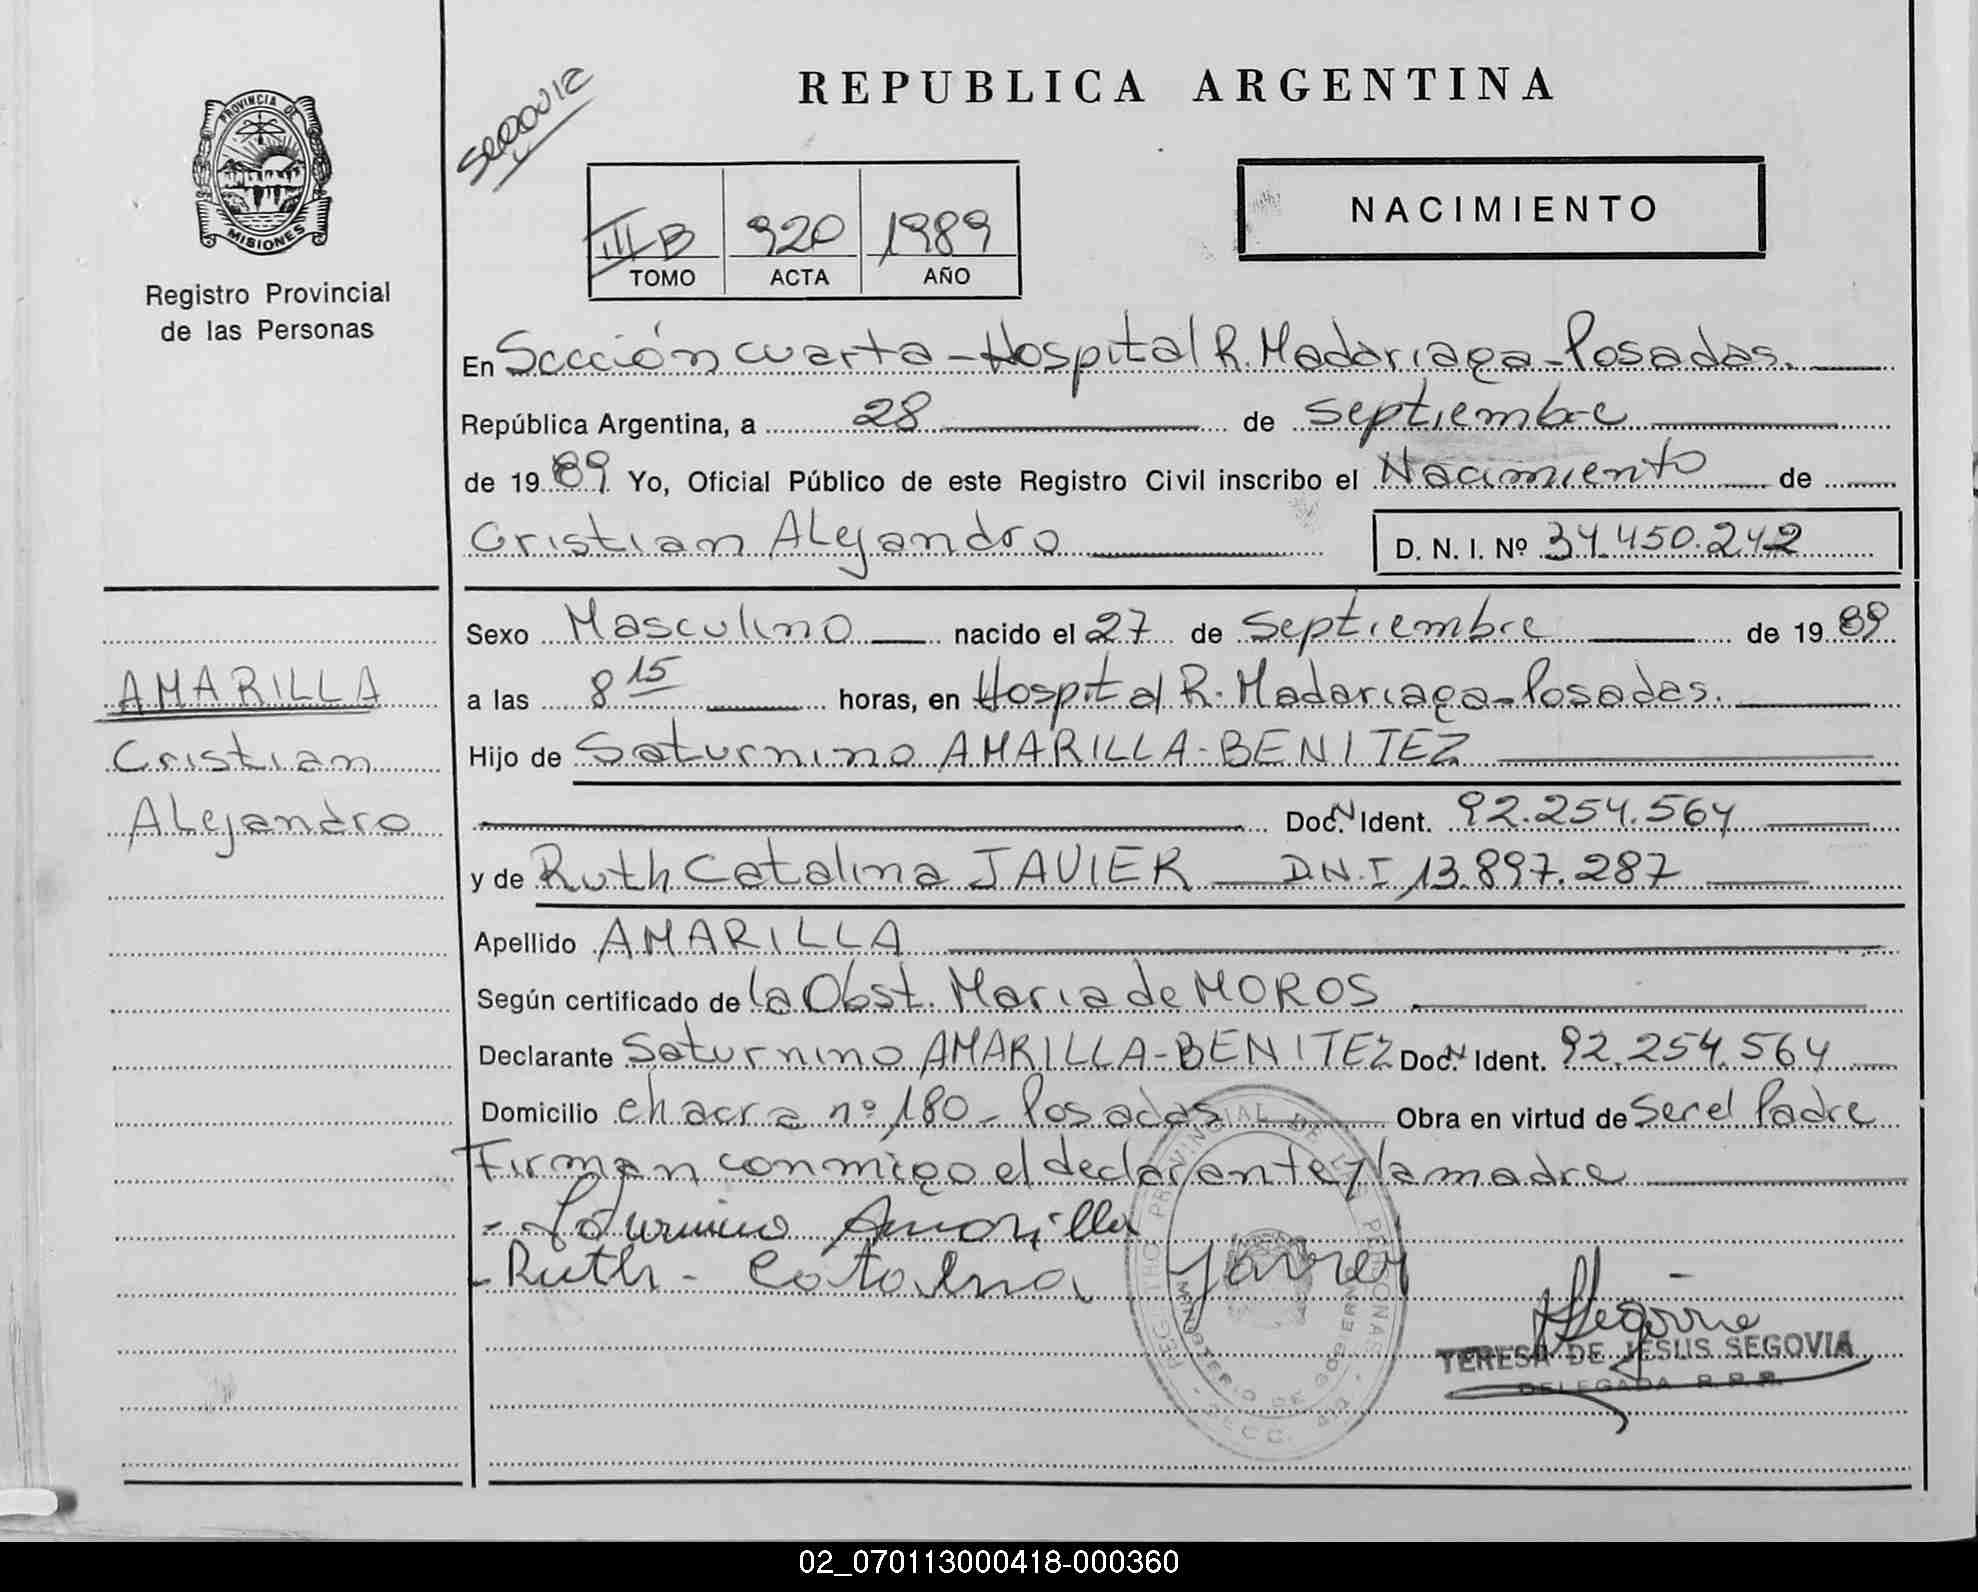 PROVINCIA DE
MISIONES
Registro Provincial
de las Personas
REPUBLICA ARGENTINA
III B 920 1989
TOMO ACTA AÑO
NACIMIENTO
En Sección cuarta - Hospital R. Madariaga - Posadas.
República Argentina, a 28 de septiembre
de 1989 Yo, Oficial Público de este Registro Civil inscribo el Nacimiento de
Cristian Alejandro D. N. I. Nº 34.450.242
Sexo Masculino nacido el 27 de septiembre de 1989
a las 8 15 horas, en Hospital R. Madariaga - Posadas.
Hijo de Saturnino AMARILLA - BENITEZ
Doc. N Ident. 92.254.564
y de Ruth Catalina JAVIER D.N.I 13.897.287
Apellido AMARILLA
Según certificado de la Obst. Maria de MOROS
Declarante Saturnino AMARILLA - BENITEZ Doc. N Ident. 92.254.564
Domicilio chacra nº 180 - Posadas Obra en virtud de ser el Padre
Firman conmigo el declarante y la madre
- Saturnino Amarilla
- Ruth - Catalina Javier
AMARILLA
Cristian
Alejandro
REGISTRO PROVINCIAL DE LAS PERSONAS
MINISTERIO DE GOBIERNO
TSegovia
TERESA DE JESUS SEGOVIA
DELEGADA R.P.P.
02_070113000418-000360